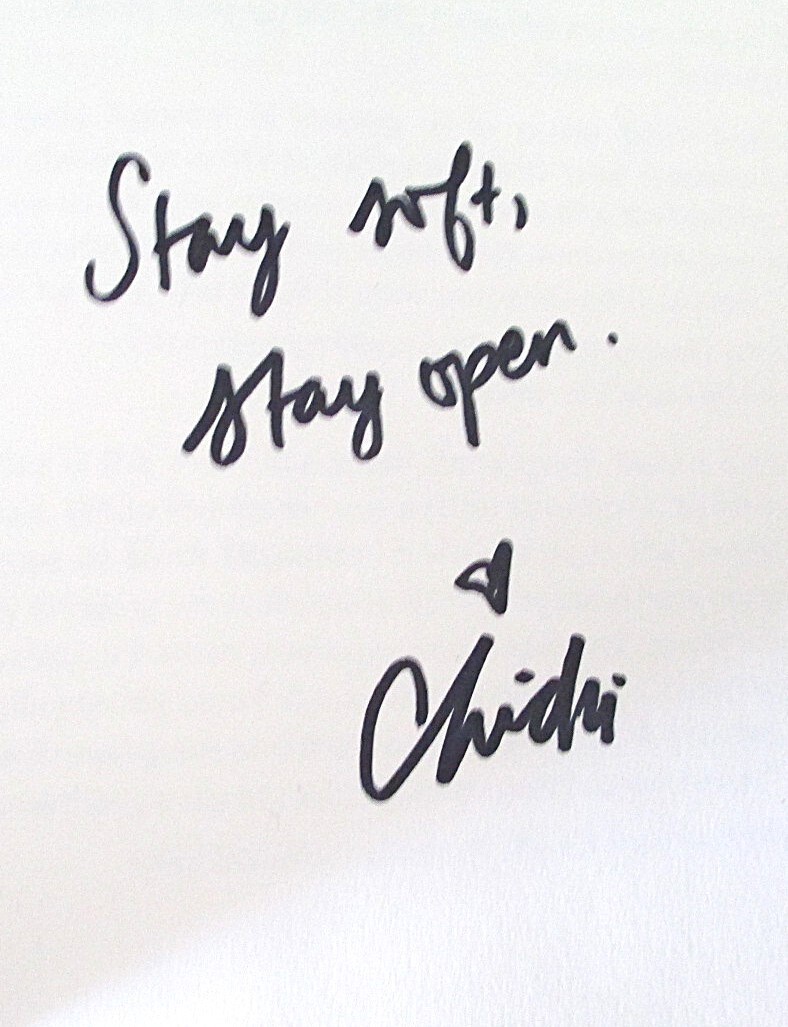 Stay soft,
stay open.
Chichi